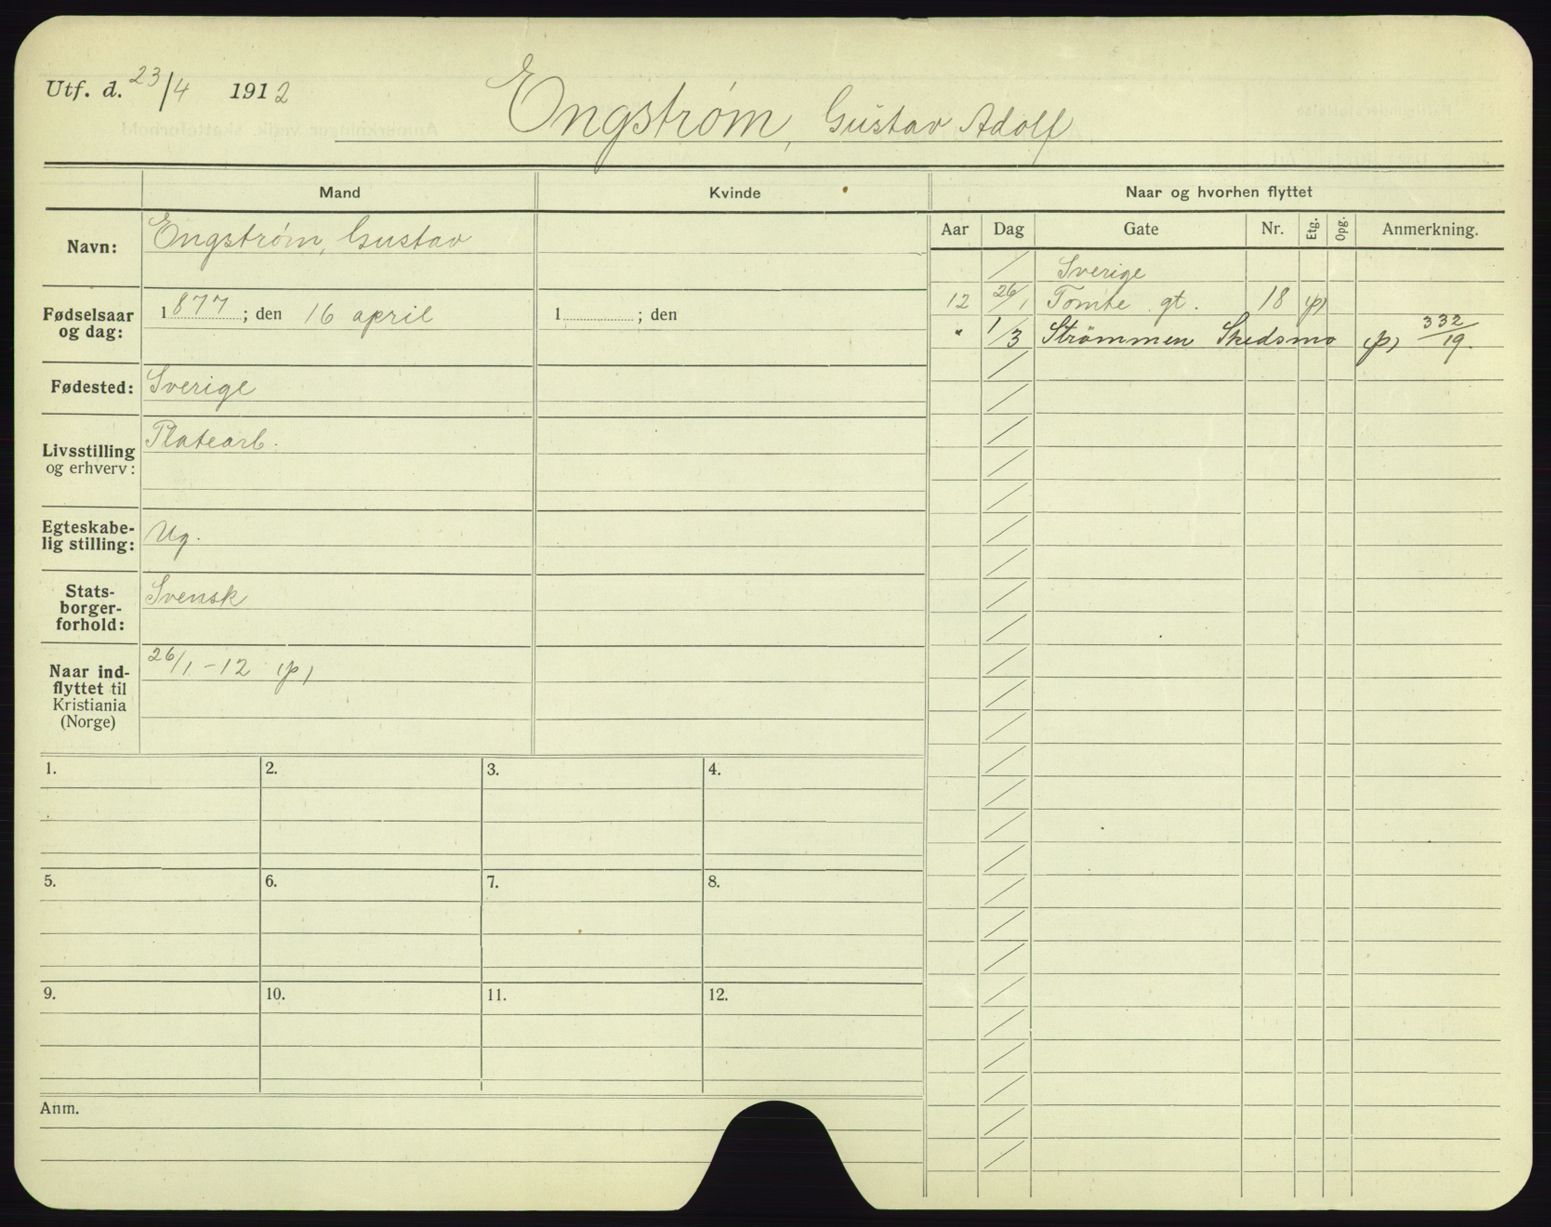 Utf. d. 23/4 1912
Engstrøm, Gustav Adolf
Mand
Kvinde
Naar og hvorhen flyttet
Aar Dag Gate Nr. Etg. Opg. Anmerkning.
Navn: Engstrøm, Gustav
Fødselsaar
og dag: 1877; den 16 april
1 ; den
Fødested: Sverige
Livsstilling
og erhverv: Platearb.
Egteskabe-
lig stilling: Ug.
Stats-
borger-
forhold: Svensk
Naar ind-
flyttet til
Kristiania
(Norge) 26/1-12 (p)
Sverige
12 26/1 Tomte gt. 18 (p)
" 1/3 Strømmen Skedsmo (p) 332/19.
1. 2. 3. 4.
5. 6. 7. 8.
9. 10. 11. 12.
Anm.